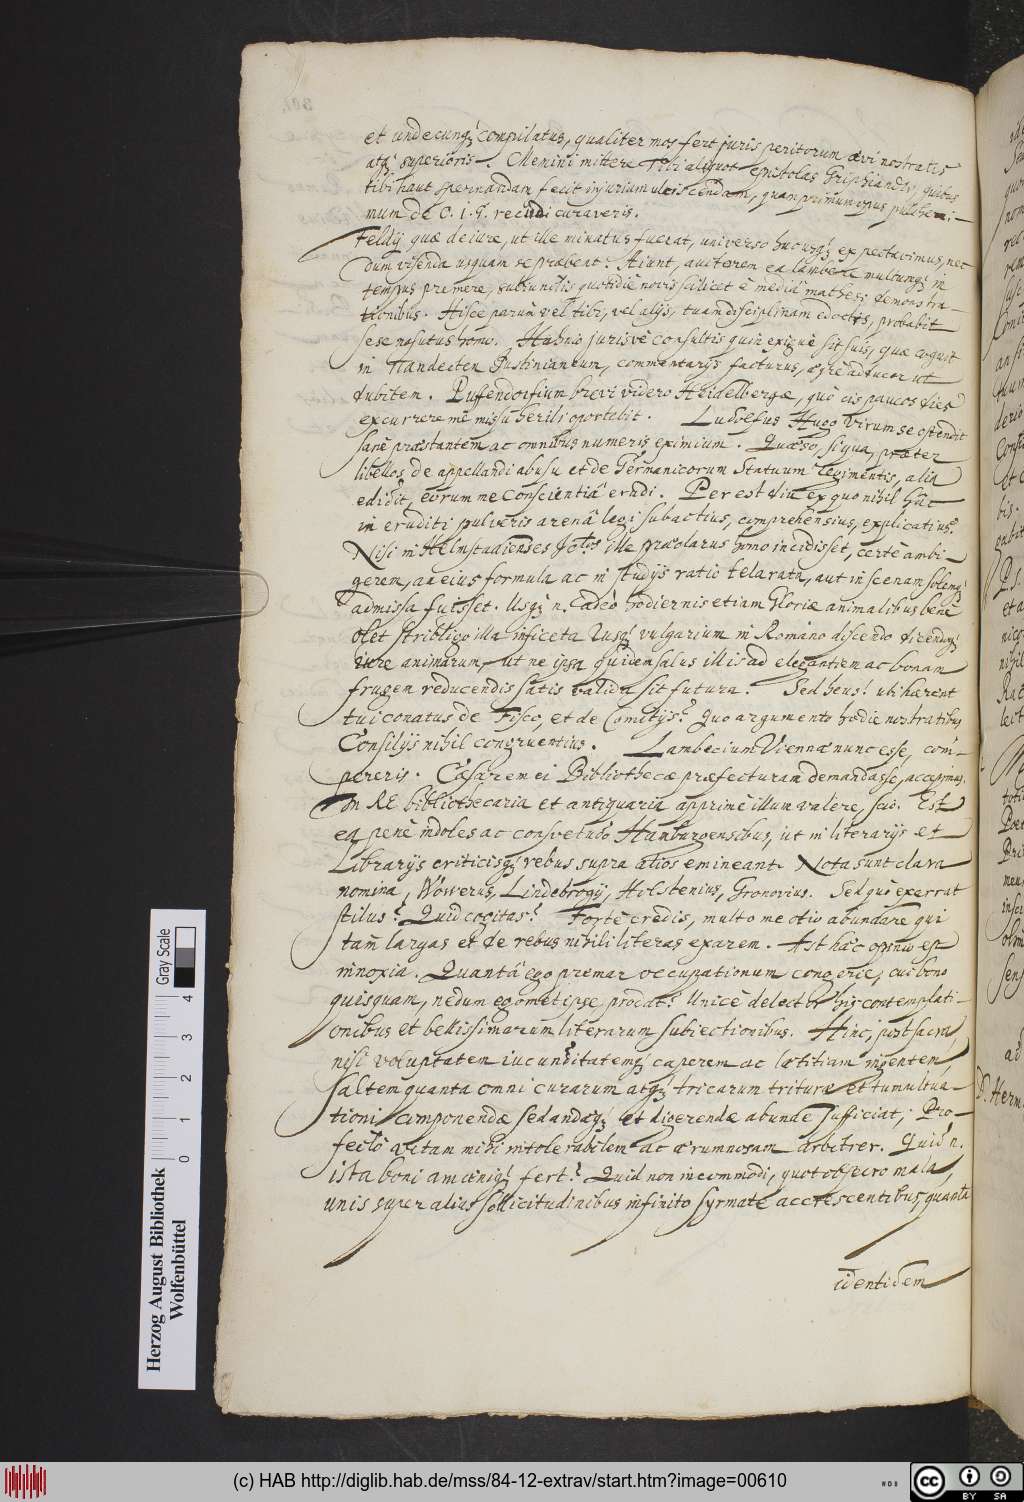 et undecunq; compilatus, qualiter mos fert juris peritorum ævi nostratis
atq; superioris. Memini mittere Tibi aliquot epistolas Griphiandri, quibus
tibi haut spernandam fecit injurium ulciscendam, quamprimum opus pulcherri-
mum de C. I. G. recudi curaveris.
Feldij quæ de iure, ut ille minatus fuerat, universo hucusq; expectavimus, nec
dum visenda usquam se præbent. Aiunt, autorem ea lambere multumq; in
tempus premere, subrunctis quotidie novis scilicet è mediâ mathesi demonstra-
tionibus. Hisce parum vel tibi, vel alijs, tuam disciplinam edoctis, probabit
sese nasutus homo. Hahnio jurisve consultis quin exigue sit suis, quæ coquit
in Pandecten Justinianeum, commentarijs facturus, ægre adducor ut
dubitem. Puffendorfium brevi videro Heidelbergæ, quò cis paucos dies
excurrere me missu herili oportebit. Ludolfus Hugo virum se ostendit
sanè præstantem ac omnibus numeris eximium. Quæso, si qua, præter
libellos de appellandi abusu et de Germanicorum Statuum regimentis, alia
edidit, eorum me conscientiâ erudi. Per est diu ex quo nihil hâc
in eruditi pulveris arenâ legi subactius, comprehensius, explicatius.
Nisi in Helmstadienses Jctos ille præclarus homo incidisset, certè ambi-
gerem, an eius formula ac in studijs ratio telarata, aut in scenam solenq;
admissa fuisset. Usq; n. adeò hodiernis etiam Gloriæ animalibus benè
olet stribligo illa inficeta Jusq; vulgarium in Romano discendo dicendoq;
iure animarum, ut ne ipsa quidem salus illis ad elegantiem ac bonam
frugem reducendis satis valida sit futura. Sed heus! ubi hærent
tui conatus de Fisco, et de Comitijs? quo argumento hodie nostratibus
Consilijs nihil congruentius. Lambecium Viennæ nunc esse, com-
pereris. Cæsarem ei Bibliothecæ præfecturam demandasse, accepimus.
In RE bibliothecaria et antiquaria apprimè illum valere, scio. Est
ea penè indoles ac consvetudo Hamburgensibus, ut in literarijs et
Librarijs criticisq; rebus supra alios emineant. Nota sunt clara
nomina, Wowerus, Lindebrogij, Holstenius, Gronovius. Sed quò exerrat
stilus? Quid cogitas? Fortè credis, multo me otio abundare qui
tam largas et de rebus nihili literas exarem. Ast hâc opinio est
innoxia. Quantâ ego premar occupationum congerie, cui bono
quisquam, nedum egomet ipse, prodat? Unicè delector his contemplati-
onibus et bellissimarum literarum subiectionibus. Hinc, post sacra,
nisi voluptatem iucunditatemq; caperem ac lætitiam ingentem,
saltem quanta omni curarum atq; tricarum trituræ et tumultua-
tioni componendæ sedandæq; et digerendæ abunde sufficiat, Pro-
fectò vitam mihi intolerabilem ac ærumnosam arbitrer. Quid n.
ista boni amœniq; fert? Quid non incommodi, quot obsecro mala,
unis super alius sollicitudinibus infinito syrmate accrescentibus, quanta
identidem
Herzog August Bibliothek
Wolfenbüttel
Gray Scale
0 1 2 3 4
(c) HAB http://diglib.hab.de/mss/84-12-extrav/start.htm?image=00610
cc BY SA